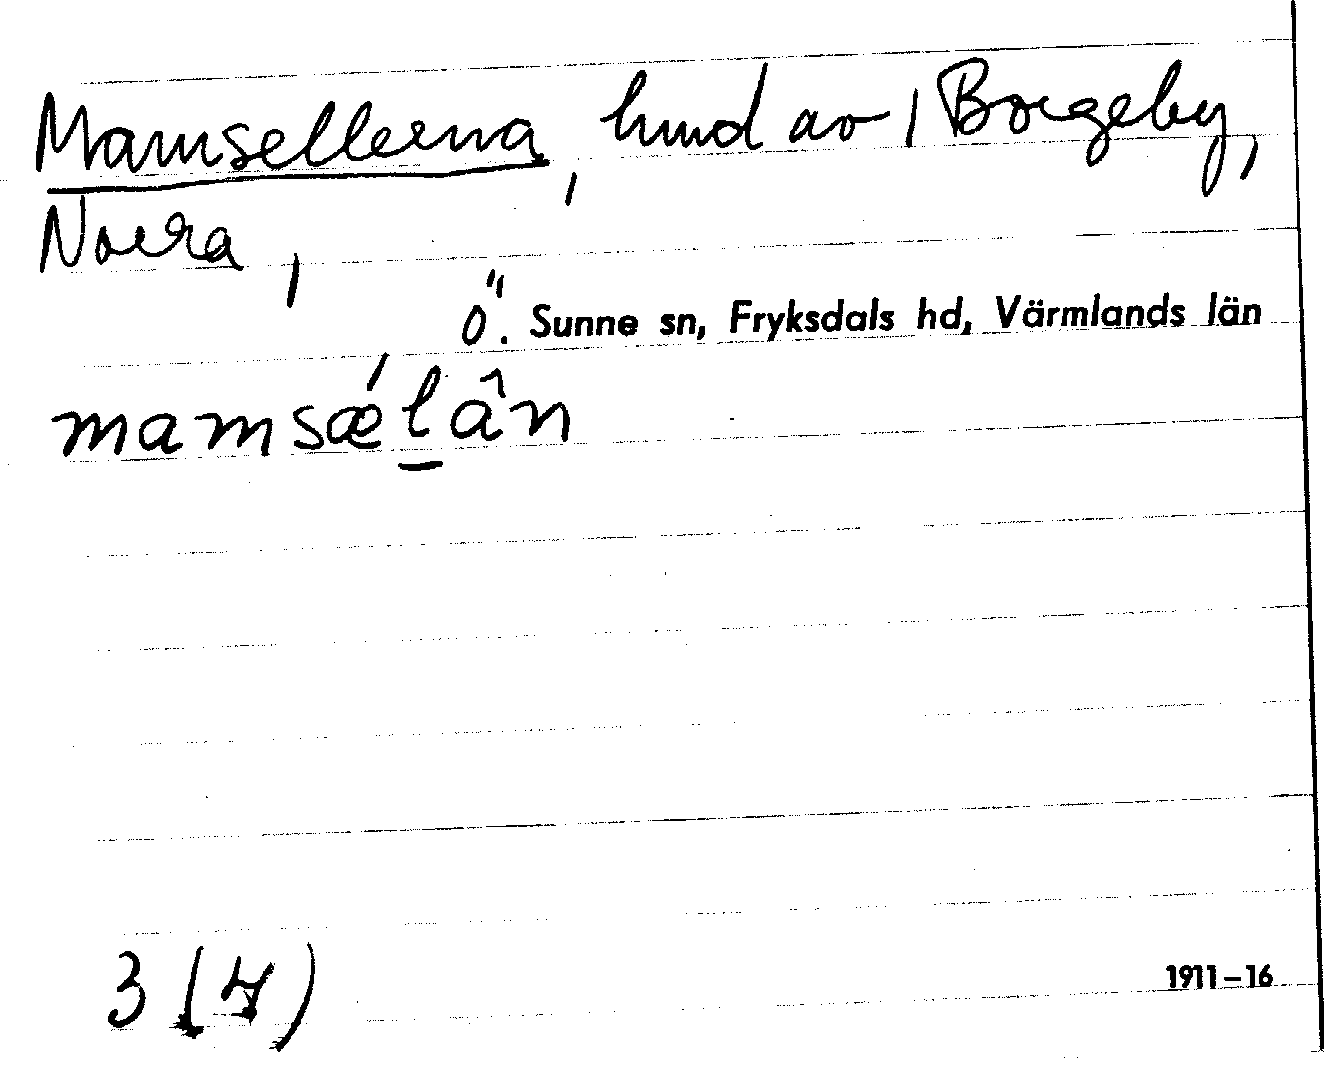 Mamsellerna, hmd av, Borgeby,
Norra,
Ö. Sunne sn, Fryksdals hd, Värmlands län
mamsǽl̲ân
3 (7)
1911–16